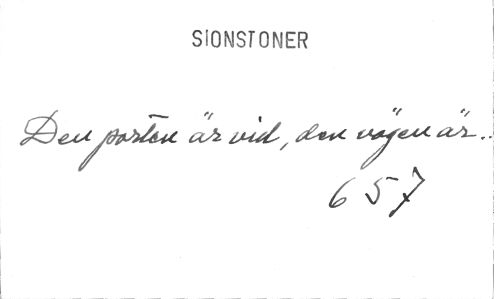 SIONSTONER
Den porten är vid, den vägen är..
657